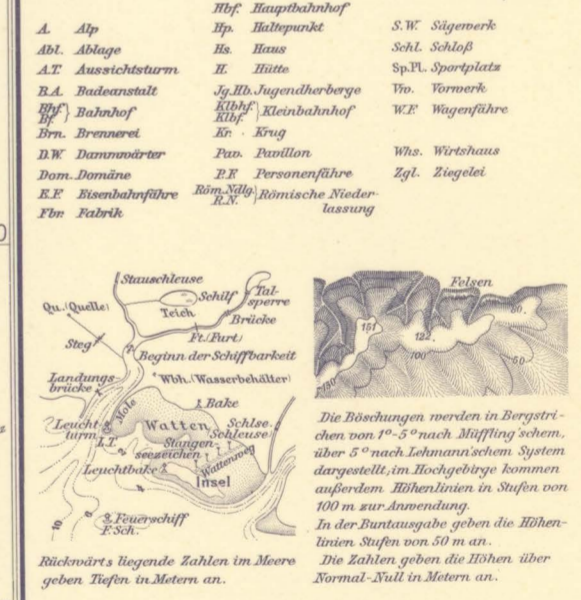 Hbf. Hauptbahnhof
A. Alp
Abl. Ablage
A.T. Aussichtsturm
B.A. Badeanstalt
Bhf. Bf. } Bahnhof
Brn. Brennerei
D.W. Dammwärter
Dom. Domäne
E.F. Eisenbahnfähre
Fbr. Fabrik
Hp. Haltepunkt
Hs. Haus
H. Hütte
Jg.Hb. Jugendherberge
Klbhf. Klbf. } Kleinbahnhof
Kr. Krug
Pav. Pavillon
P.F. Personenfähre
Röm.Ndlg. R.N. } Römische Nieder-
lassung
S.W. Sägewerk
Schl. Schloß
Sp.Pl. Sportplatz
Vw. Vorwerk
W.F. Wagenfähre
Whs. Wirtshaus
Zgl. Ziegelei
Stauschleuse
Qu. (Quelle)
Schilf
Teich
Tal-
sperre
Brücke
Ft. (Furt)
Steg
Beginn der Schiffbarkeit
Wbh. (Wasserbehälter)
Landungs-
brücke
Mole
Bake
Leucht-
turm
L.T.
Watten
Schlse.
Schleuse
Stangen-
seezeichen
Wattenweg
Leuchtbake
Insel
2
4
6
10
Feuerschiff
F.Sch.
Rückwärts liegende Zahlen im Meere
geben Tiefen in Metern an.
Felsen
151
122.
100
80.
50
130
Die Böschungen werden in Bergstri-
chen von 1º-5º nach Müffling'schem,
über 5º nach Lehmann'schem System
dargestellt, im Hochgebirge kommen
außerdem Höhenlinien in Stufen von
100 m zur Anwendung.
In der Buntausgabe geben die Höhen-
linien Stufen von 50 m an.
Die Zahlen geben die Höhen über
Normal-Null in Metern an.